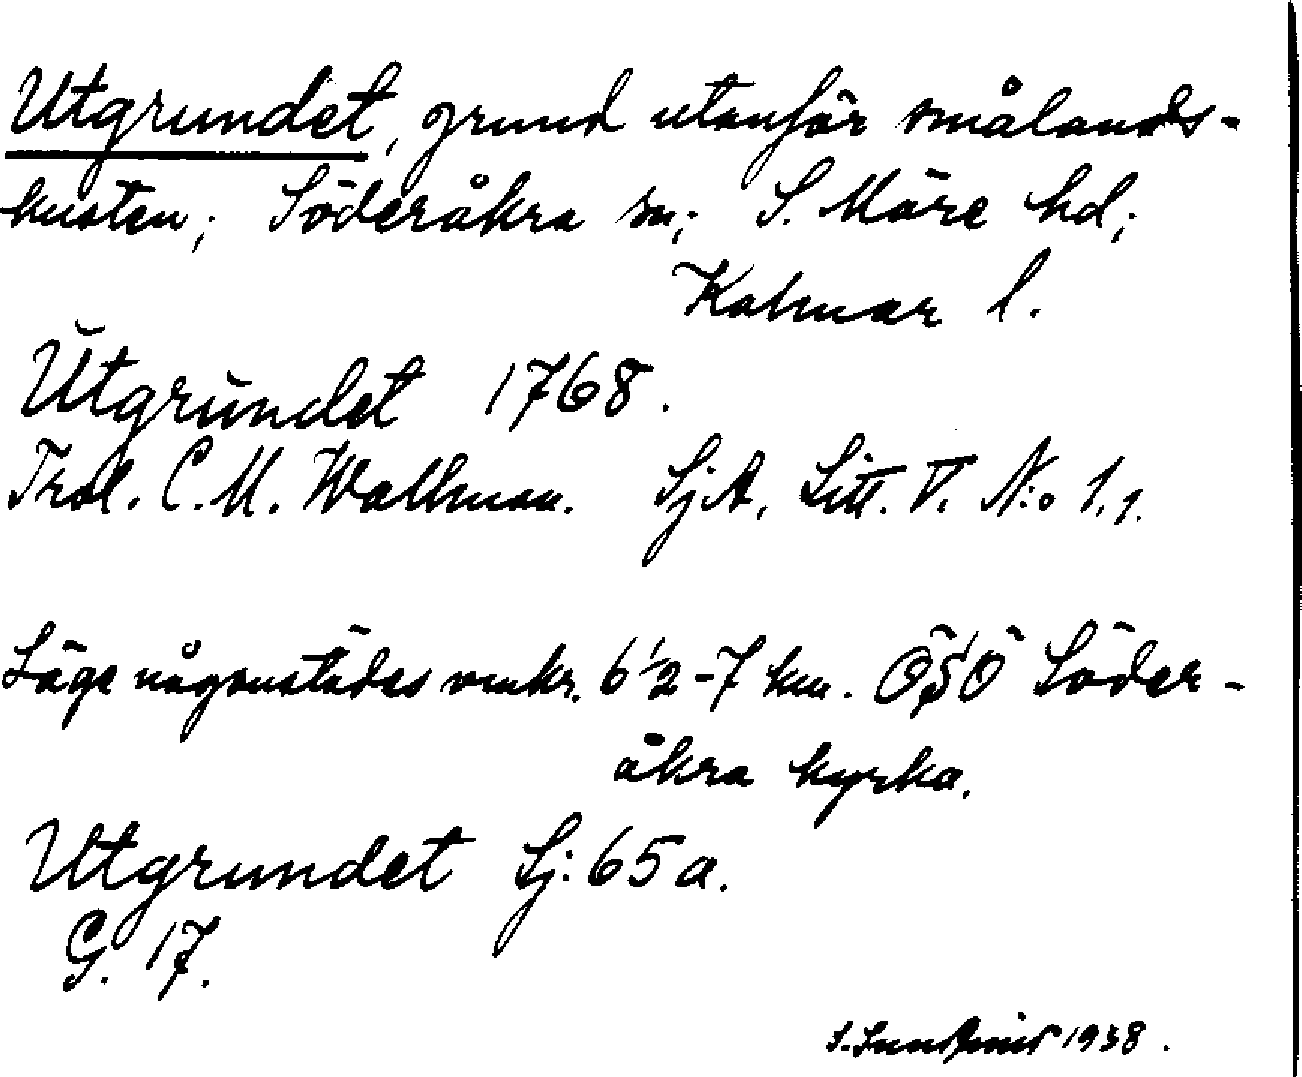 Utgrundet, grund utanför smålands-
kusten; Söderåkra sn; S. Möre hd;
Kalmar l.
Ŭtgrŭndet 1768.
Trol. C. M. Wallman. SjA, Litt. V. N:o 1,1.
Läge någonstädes omkr. 6 1/2-7 km. ÖSÖ Söder-
åkra kyrka.
Utgrundet Sj: 65 a.
G. 17.
1938.